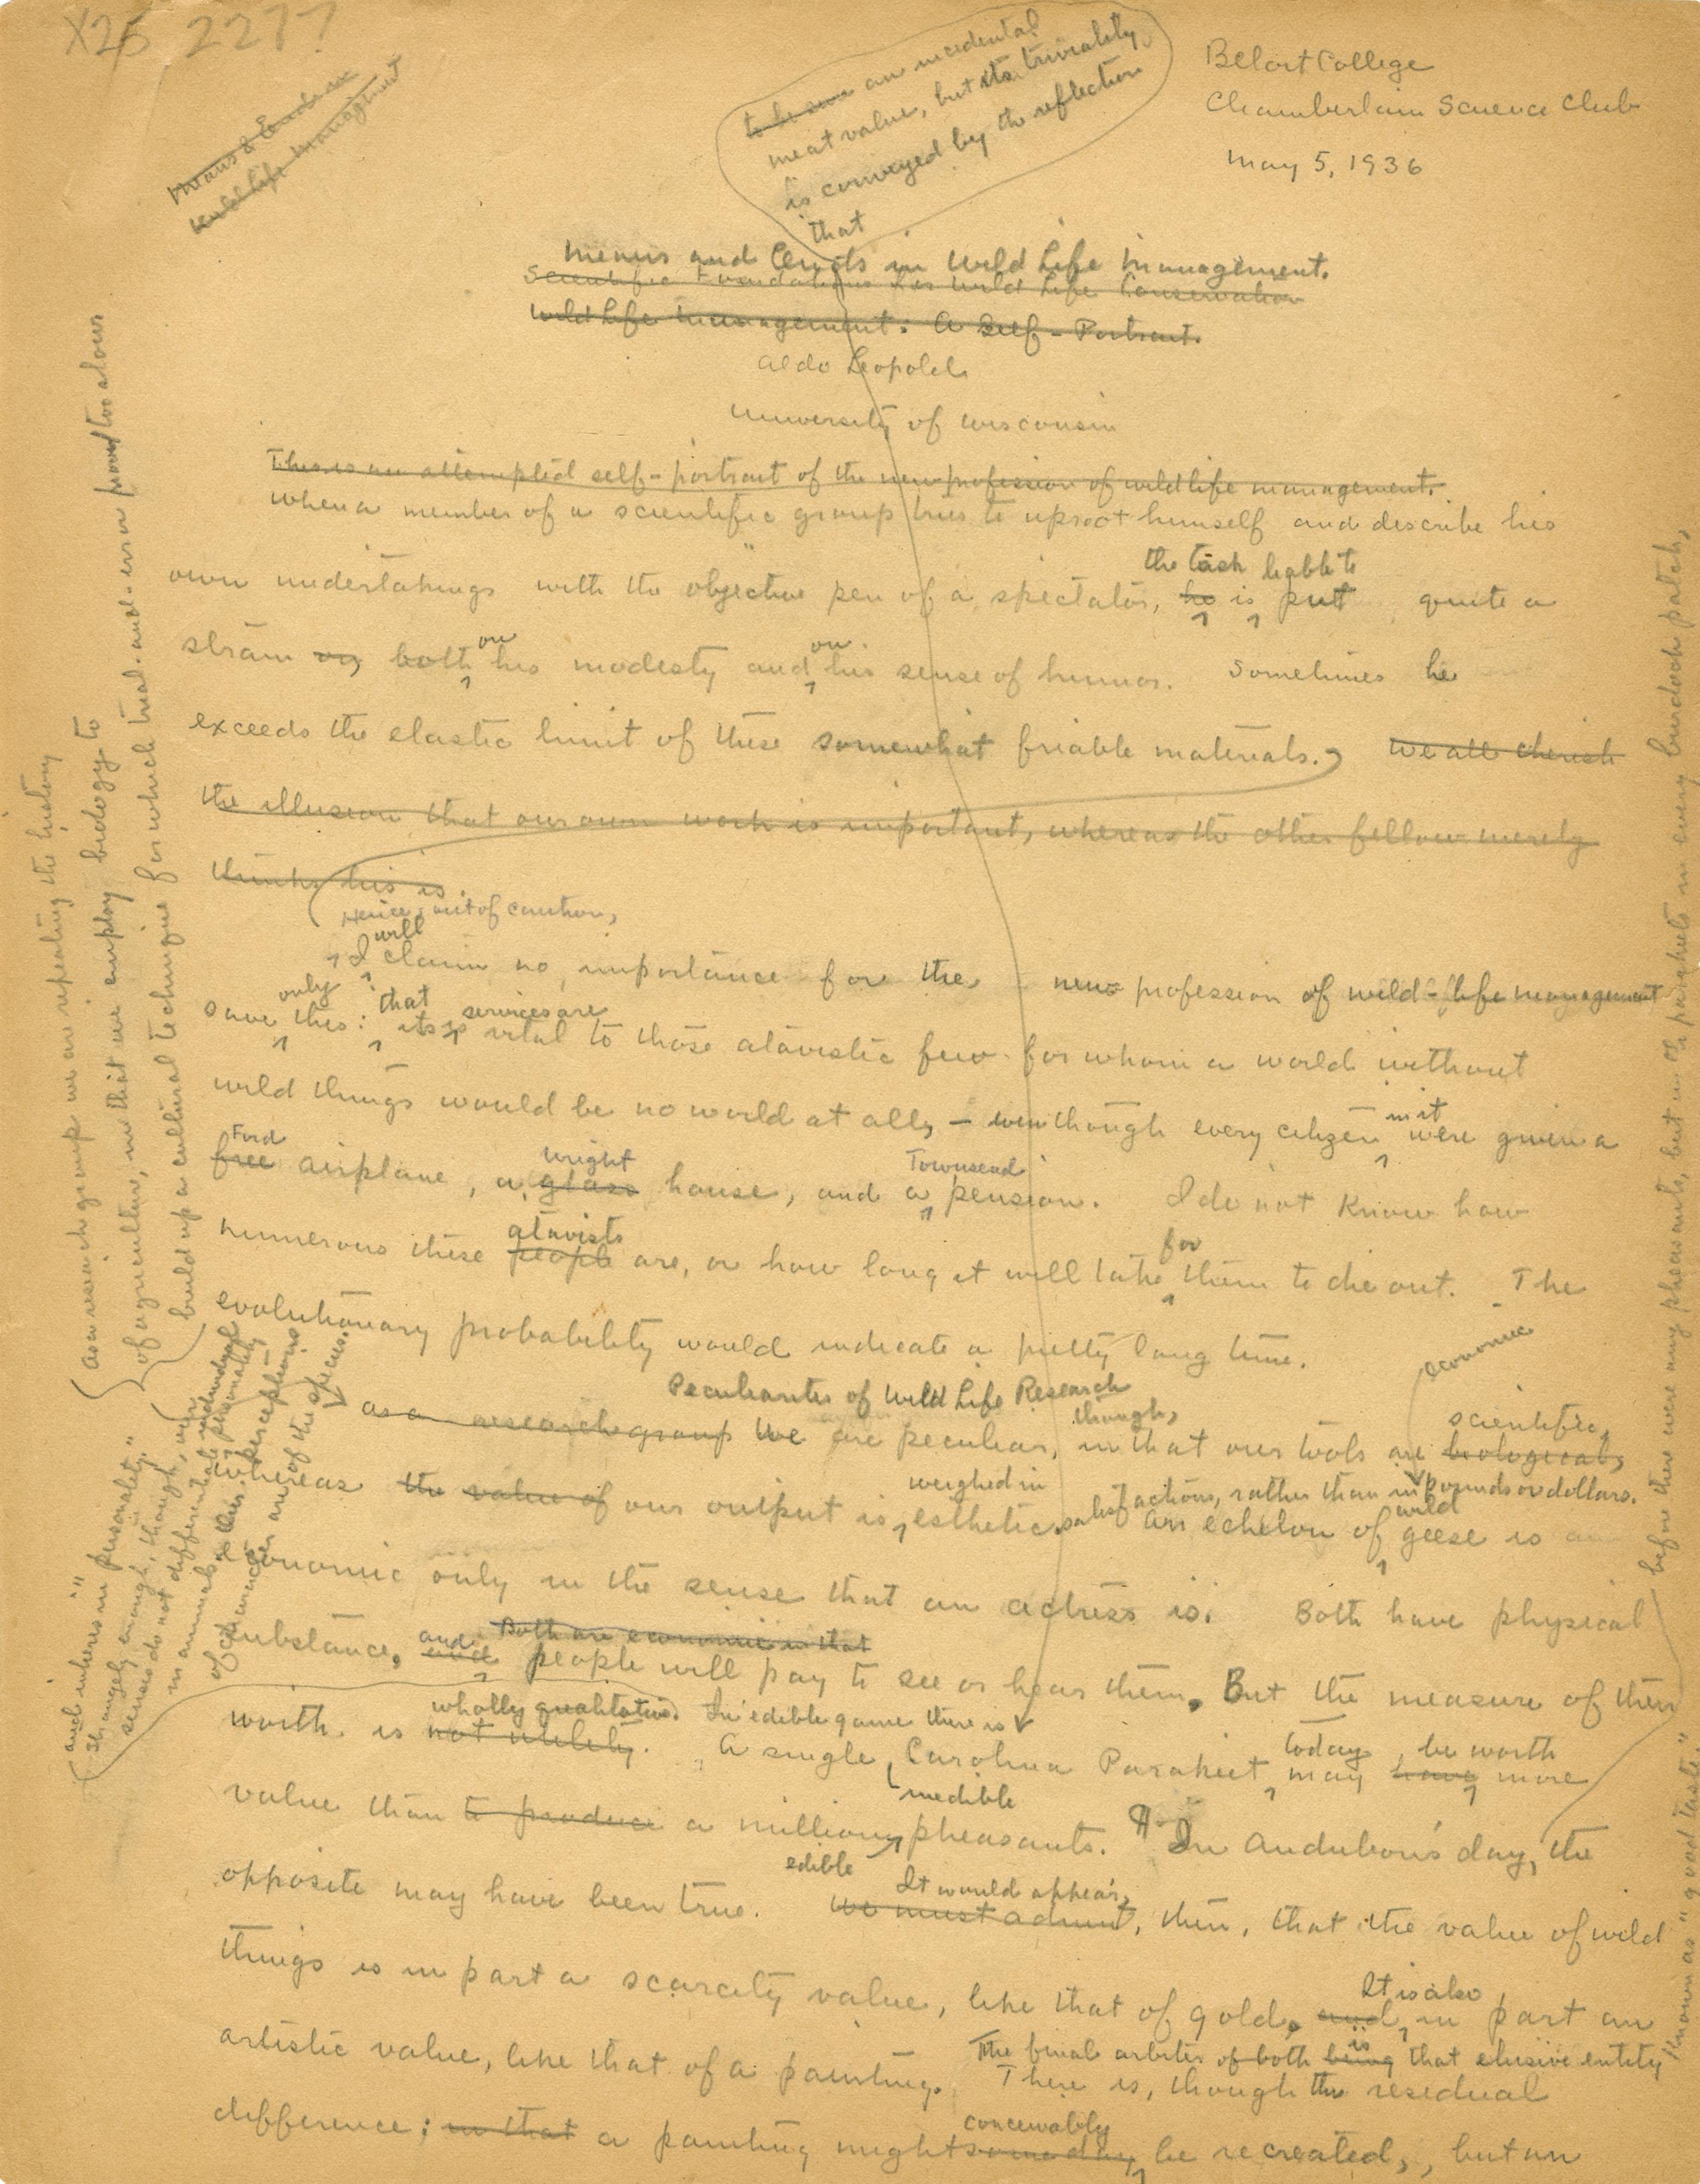 X25 2277
Means & Ends in
Wild Life Management
to be sure an incidental
meat value, but its triviality
is conveyed by the reflection
that
Beloit College
Chamberlain Science Club
May 5, 1936
Means and Ends in Wild Life Management.
Scientific Foundations for Wild Life Conservation
Wild Life Management: A Self-Portrait.
Aldo Leopold
University of Wisconsin
This is an attempted self-portrait of the new profession of wildlife management.
When a member of a scientific group tries to uproot himself and describe his
the task liable to
own undertakings with the "objective" pen of a spectator, he is put quite a
on on
strain on both his modesty and his sense of humor. Sometimes he
exceeds the elastic limit of these somewhat friable materials. We all cherish
the illusion that our own work is important, whereas the other fellow merely
thinks his is.
Hence, out of caution,
will
I claim no importance for the new profession of wild-life management
only that services are
save this: its vital to those atavistic few for whom a world without
wild things would be no world at all, – even though every citizen in it were given a
Ford Wright Townsend
free airplane, a glass house, and a pension. I do not know how
atavists for
numerous these people are, or how long it will take them to die out. The
evolutionary probability would indicate a pretty long time.
Peculiarities of Wild Life Research
economic
though, scientific,
As a research group We are peculiar, in that our tools are biological,
weighed in satisfactions, rather than in pounds or dollars.
whereas the value of our output is esthetic. An echelon of wild geese is an
economic only in the sense that an actress is. Both have physical
and Both are economic in that
substance, and people will pay to see or hear them. But the measure of their
wholly qualitative. In edible game there is
worth is not utility. A single Carolina Parakeet today may have be worth more
inedible
value than to produce a million pheasants. ¶ In Audubon's day, the
edible It would appear,
opposite may have been true. We must admit, then, that the value of wild
things is in part a scarcity value, like that of gold. and It is also in part an
The final arbiter of both being is that elusive entity
artistic value, like that of a painting. There is, though this residual
conceivably
difference; in that a painting might some day be recreated, but an
As a research group we are repeating the history
of agriculture, in that we employ biology to
build up a cultural technique for which trial-and-error proved too slow
and inheres in "personality."
Strangely enough, though, our
senses do not differentiate individual
in animals; this personality
of character are perceptions
of the species.
before there were any pheasants, but of parakeets in every burdock patch,
known as "good taste".